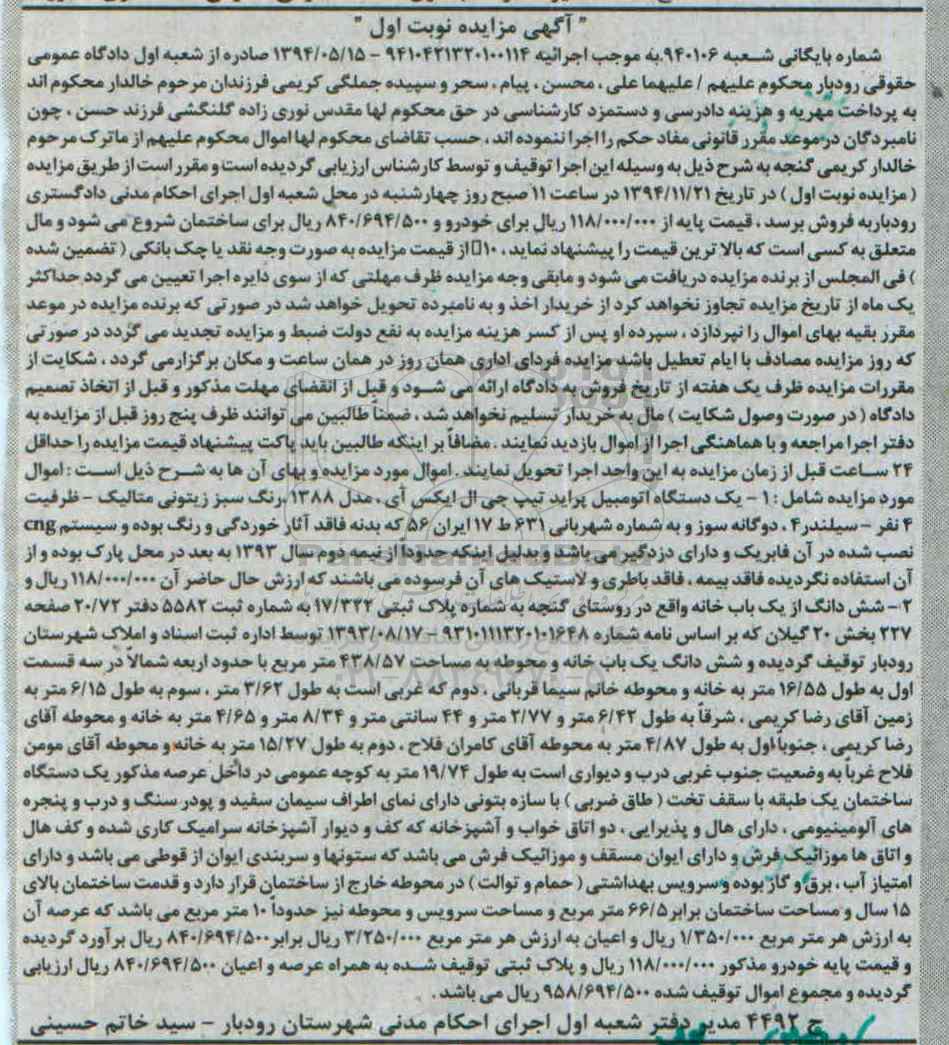 " آگهی مزایده نوبت اول "
شماره بایگانی شعبه ۹۴۰۱۰۶.به موجب اجرائیه ۹۴۱۰۴۲۱۳۲۰۱۰۰۱۱۴ - ۱۳۹۴/۰۵/۱۵ صادره از شعبه اول دادگاه عمومی
حقوقی رودبار محکوم علیهم / علیهما علی ، محسن ، پیام ، سحر و سپیده جملگی کریمی فرزندان مرحوم خالدار محکوم اند
به پرداخت مهریه و هزینه دادرسی و دستمزد کارشناسی در حق محکوم لها مقدس نوری زاده گلنگشی فرزند حسن ، چون
نامبردگان در موعد مقرر قانونی مفاد حکم را اجرا ننموده اند ، حسب تقاضای محکوم لها اموال محکوم علیهم از ماترک مرحوم
خالدار کریمی گنجه به شرح ذیل به وسیله این اجرا توقیف و توسط کارشناس ارزیابی گردیده است و مقرر است از طریق مزایده
( مزایده نوبت اول ) در تاریخ ۱۳۹۴/۱۱/۲۱ در ساعت ۱۱ صبح روز چهارشنبه در محل شعبه اول اجرای احکام مدنی دادگستری
رودبار به فروش برسد ، قیمت پایه از ۱۱۸/۰۰۰/۰۰۰ ریال برای خودرو و ۸۴۰/۶۹۴/۵۰۰ ریال برای ساختمان شروع می شود و مال
متعلق به کسی است که بالا ترین قیمت را پیشنهاد نماید ، ۱۰ از قیمت مزایده به صورت وجه نقد یا چک بانکی ( تضمین شده
) فی المجلس از برنده مزایده دریافت می شود و مابقی وجه مزایده ظرف مهلتی که از سوی دایره اجرا تعیین می گردد حداکثر
یک ماه از تاریخ مزایده تجاوز نخواهد کرد از خریدار اخذ و به نامبرده تحویل خواهد شد در صورتی که برنده مزایده در موعد
مقرر بقیه بهای اموال را نپردازد ، سپرده او پس از کسر هزینه مزایده به نفع دولت ضبط و مزایده تجدید می گردد در صورتی
که روز مزایده مصادف با ایام تعطیل باشد مزایده فردای اداری همان روز در همان ساعت و مکان برگزار می گردد ، شکایت از
مقررات مزایده ظرف یک هفته از تاریخ فروش به دادگاه ارائه می شود و قبل از انقضای مهلت مذکور و قبل از اتخاذ تصمیم
دادگاه ( در صورت وصول شکایت ) مال به خریدار تسلیم نخواهد شد ، ضمناً طالبین می توانند ظرف پنج روز قبل از مزایده به
دفتر اجرا مراجعه و با هماهنگی اجرا از اموال بازدید نمایند . مضافاً بر اینکه طالبین باید پاکت پیشنهاد قیمت مزایده را حداقل
۲۴ ساعت قبل از زمان مزایده به این واحد اجرا تحویل نمایند . اموال مورد مزایده و بهای آن ها به شرح ذیل است : اموال
مورد مزایده شامل : ۱ - یک دستگاه اتومبیل پراید تیپ جی ال ایکس آی ، مدل ۱۳۸۸ ،رنگ سبز زیتونی متالیک - ظرفیت
۴ نفر - سیلندر۴ ، دوگانه سوز و به شماره شهربانی ۶۳۱ ط ۱۷ ایران ۵۶ که بدنه فاقد آثار خوردگی و رنگ بوده و سیستم cng
نصب شده در آن فابریک و دارای دزدگیر می باشد و بدلیل اینکه حدوداً از نیمه دوم سال ۱۳۹۳ به بعد در محل پارک بوده و از
آن استفاده نگردیده فاقد بیمه ، فاقد باطری و لاستیک های آن فرسوده می باشند که ارزش حال حاضر آن ۱۱۸/۰۰۰/۰۰۰ ریال و
۲- شش دانگ از یک باب خانه واقع در روستای گنجه به شماره پلاک ثبتی ۱۷/۳۲۲ به شماره ثبت ۵۵۸۲ دفتر ۲۰/۷۲ صفحه
۲۲۷ بخش ۲۰ گیلان که بر اساس نامه شماره ۹۳۱۰۱۱۱۳۲۰۱۰۱۶۴۸ - ۱۳۹۳/۰۸/۱۷ توسط اداره ثبت اسناد و املاک شهرستان
رودبار توقیف گردیده و شش دانگ یک باب خانه و محوطه به مساحت ۴۳۸/۵۷ متر مربع با حدود اربعه شمالاً در سه قسمت
اول به طول ۱۶/۵۵ متر به خانه و محوطه خانم سیما قربانی ، دوم که غربی است به طول ۳/۶۲ متر ، سوم به طول ۶/۱۵ متر به
زمین آقای رضا کریمی ، شرقاً به طول ۶/۴۲ متر و ۲/۷۷ متر و ۴۴ سانتی متر و ۸/۳۴ متر و ۴/۶۵ متر به خانه و محوطه آقای
رضا کریمی ، جنوباً اول به طول ۴/۸۷ متر به محوطه آقای کامران فلاح ، دوم به طول ۱۵/۲۷ متر به خانه و محوطه آقای مومن
فلاح غرباً به وضعیت جنوب غربی درب و دیواری است به طول ۱۹/۷۴ متر به کوچه عمومی در داخل عرصه مذکور یک دستگاه
ساختمان یک طبقه با سقف تخت ( طاق ضربی ) با سازه بتونی دارای نمای اطراف سیمان سفید و پودر سنگ و درب و پنجره
های آلومینیومی ، دارای هال و پذیرایی ، دو اتاق خواب و آشپزخانه که کف و دیوار آشپزخانه سرامیک کاری شده و کف هال
و اتاق ها موزائیک فرش و دارای ایوان مسقف و موزائیک فرش می باشد که ستونها و سربندی ایوان از قوطی می باشد و دارای
امتیاز آب ، برق و گاز بوده و سرویس بهداشتی ( حمام و توالت ) در محوطه خارج از ساختمان قرار دارد و قدمت ساختمان بالای
۱۵ سال و مساحت ساختمان برابر ۶۶/۵ متر مربع و مساحت سرویس و محوطه نیز حدوداً ۱۰ متر مربع می باشد که عرصه آن
به ارزش هر متر مربع ۱/۳۵۰/۰۰۰ ریال و اعیان به ارزش هر متر مربع ۳/۲۵۰/۰۰۰ ریال برابر۸۴۰/۶۹۴/۵۰۰ ریال برآورد گردیده
و قیمت پایه خودرو مذکور ۱۱۸/۰۰۰/۰۰۰ ریال و پلاک ثبتی توقیف شده به همراه عرصه و اعیان ۸۴۰/۶۹۴/۵۰۰ ریال ارزیابی
گردیده و مجموع اموال توقیف شده ۹۵۸/۶۹۴/۵۰۰ ریال می باشد .
ح ۴۴۹۲ مدیر دفتر شعبه اول اجرای احکام مدنی شهرستان رودبار - سید خاتم حسینی